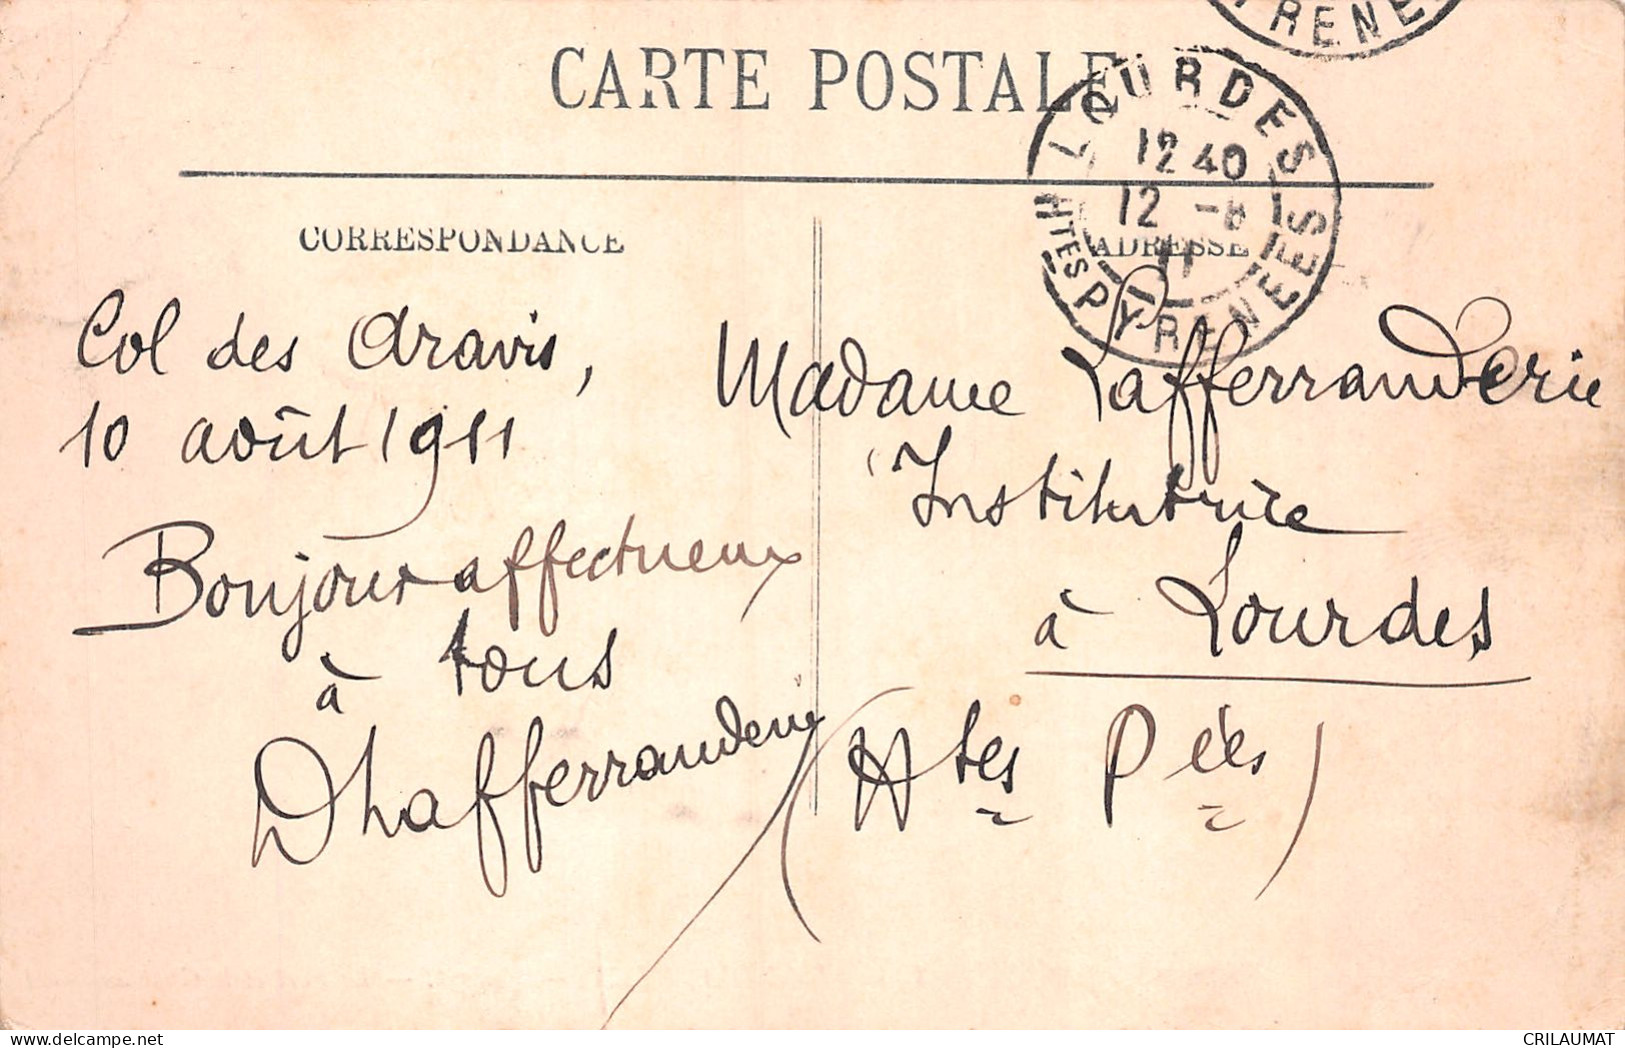 CARTE POSTALE
CORRESPONDANCE
ADRESSE
LOURDES
12 40
12 -8
11
HTES PYRENEES
PYRENE
Col des Aravis,
10 août 1911
Bonjour affectueux
à tous
Madame Lafferranderie
Institutrice
à Lourdes
(Htes Pées)
CRILAUMAT